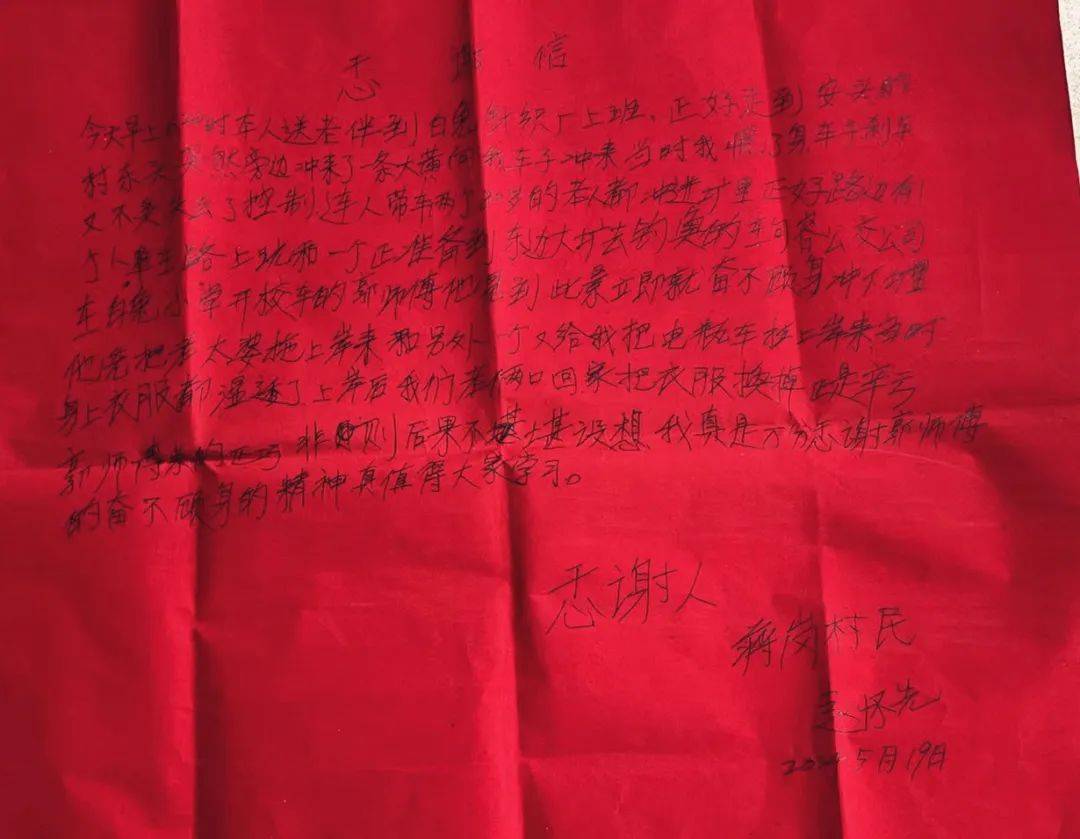 忎 谢 信
今天早上 时 车人送老伴到白兔针织厂上班,正好走到安头的
村东 突然旁边冲来了一条大黄向我车子冲来当时我慌了 车子刹车
又不 失去了控制,连人带车两个 多岁的老人都冲进圹里正好路边有
个人 在路上玩和一个正准备到东边大圹去钓鱼的在句容公交公司
在白兔小学开校车的郭师傅他见到此景立即就奋不顾身冲下圹里
他先把老太婆拖上岸来和另外一个又给我把电 车拉上岸来当时
身上衣服都湿透了上岸后我们老俩口回家把衣服换掉 是幸亏
郭师傅来的 巧非 则后果不堪 设想,我真是万分忎谢郭师傅
的奋不顾身的精神真值得大家学习。
忎谢人
蒋岗村民
怀先
5月19日